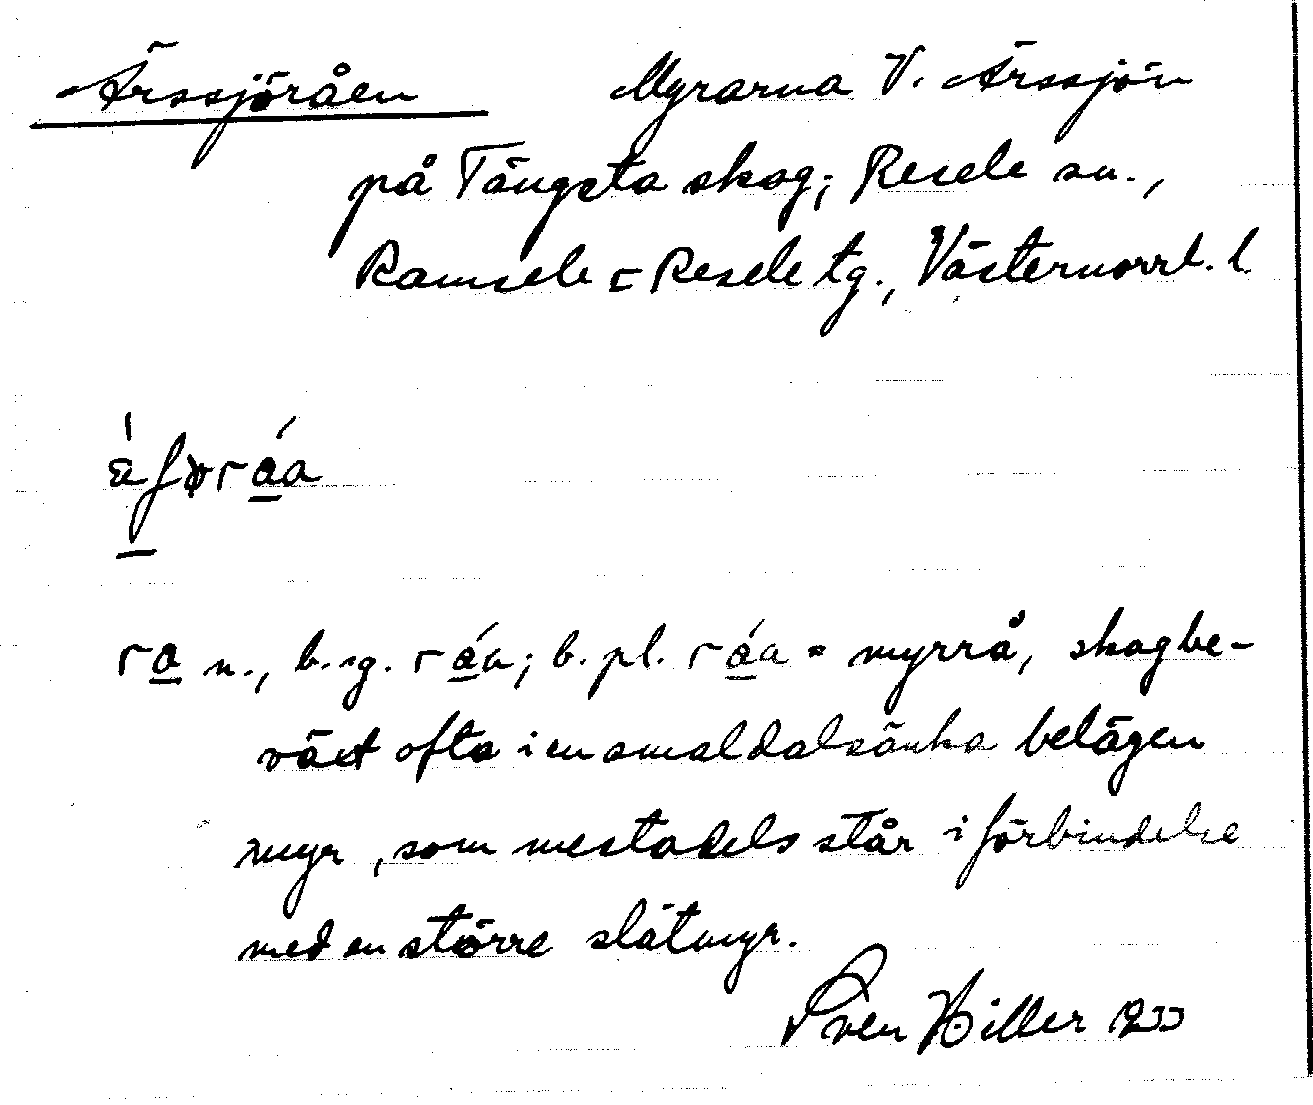 Ärssjöråen Myrarna V. Ärssjön
på Tängsta skog; Resele sn.,
Ramsele o Resele tg., Västernorrl. l.
ra n., b. sg. ráa; b. pl. ráa = myrrå, skogbe-
växt ofta i en smal dalsänka belägen
myr, som mestadels står i förbindelse
med en större slåtmyr.
Sven Hiller 1933